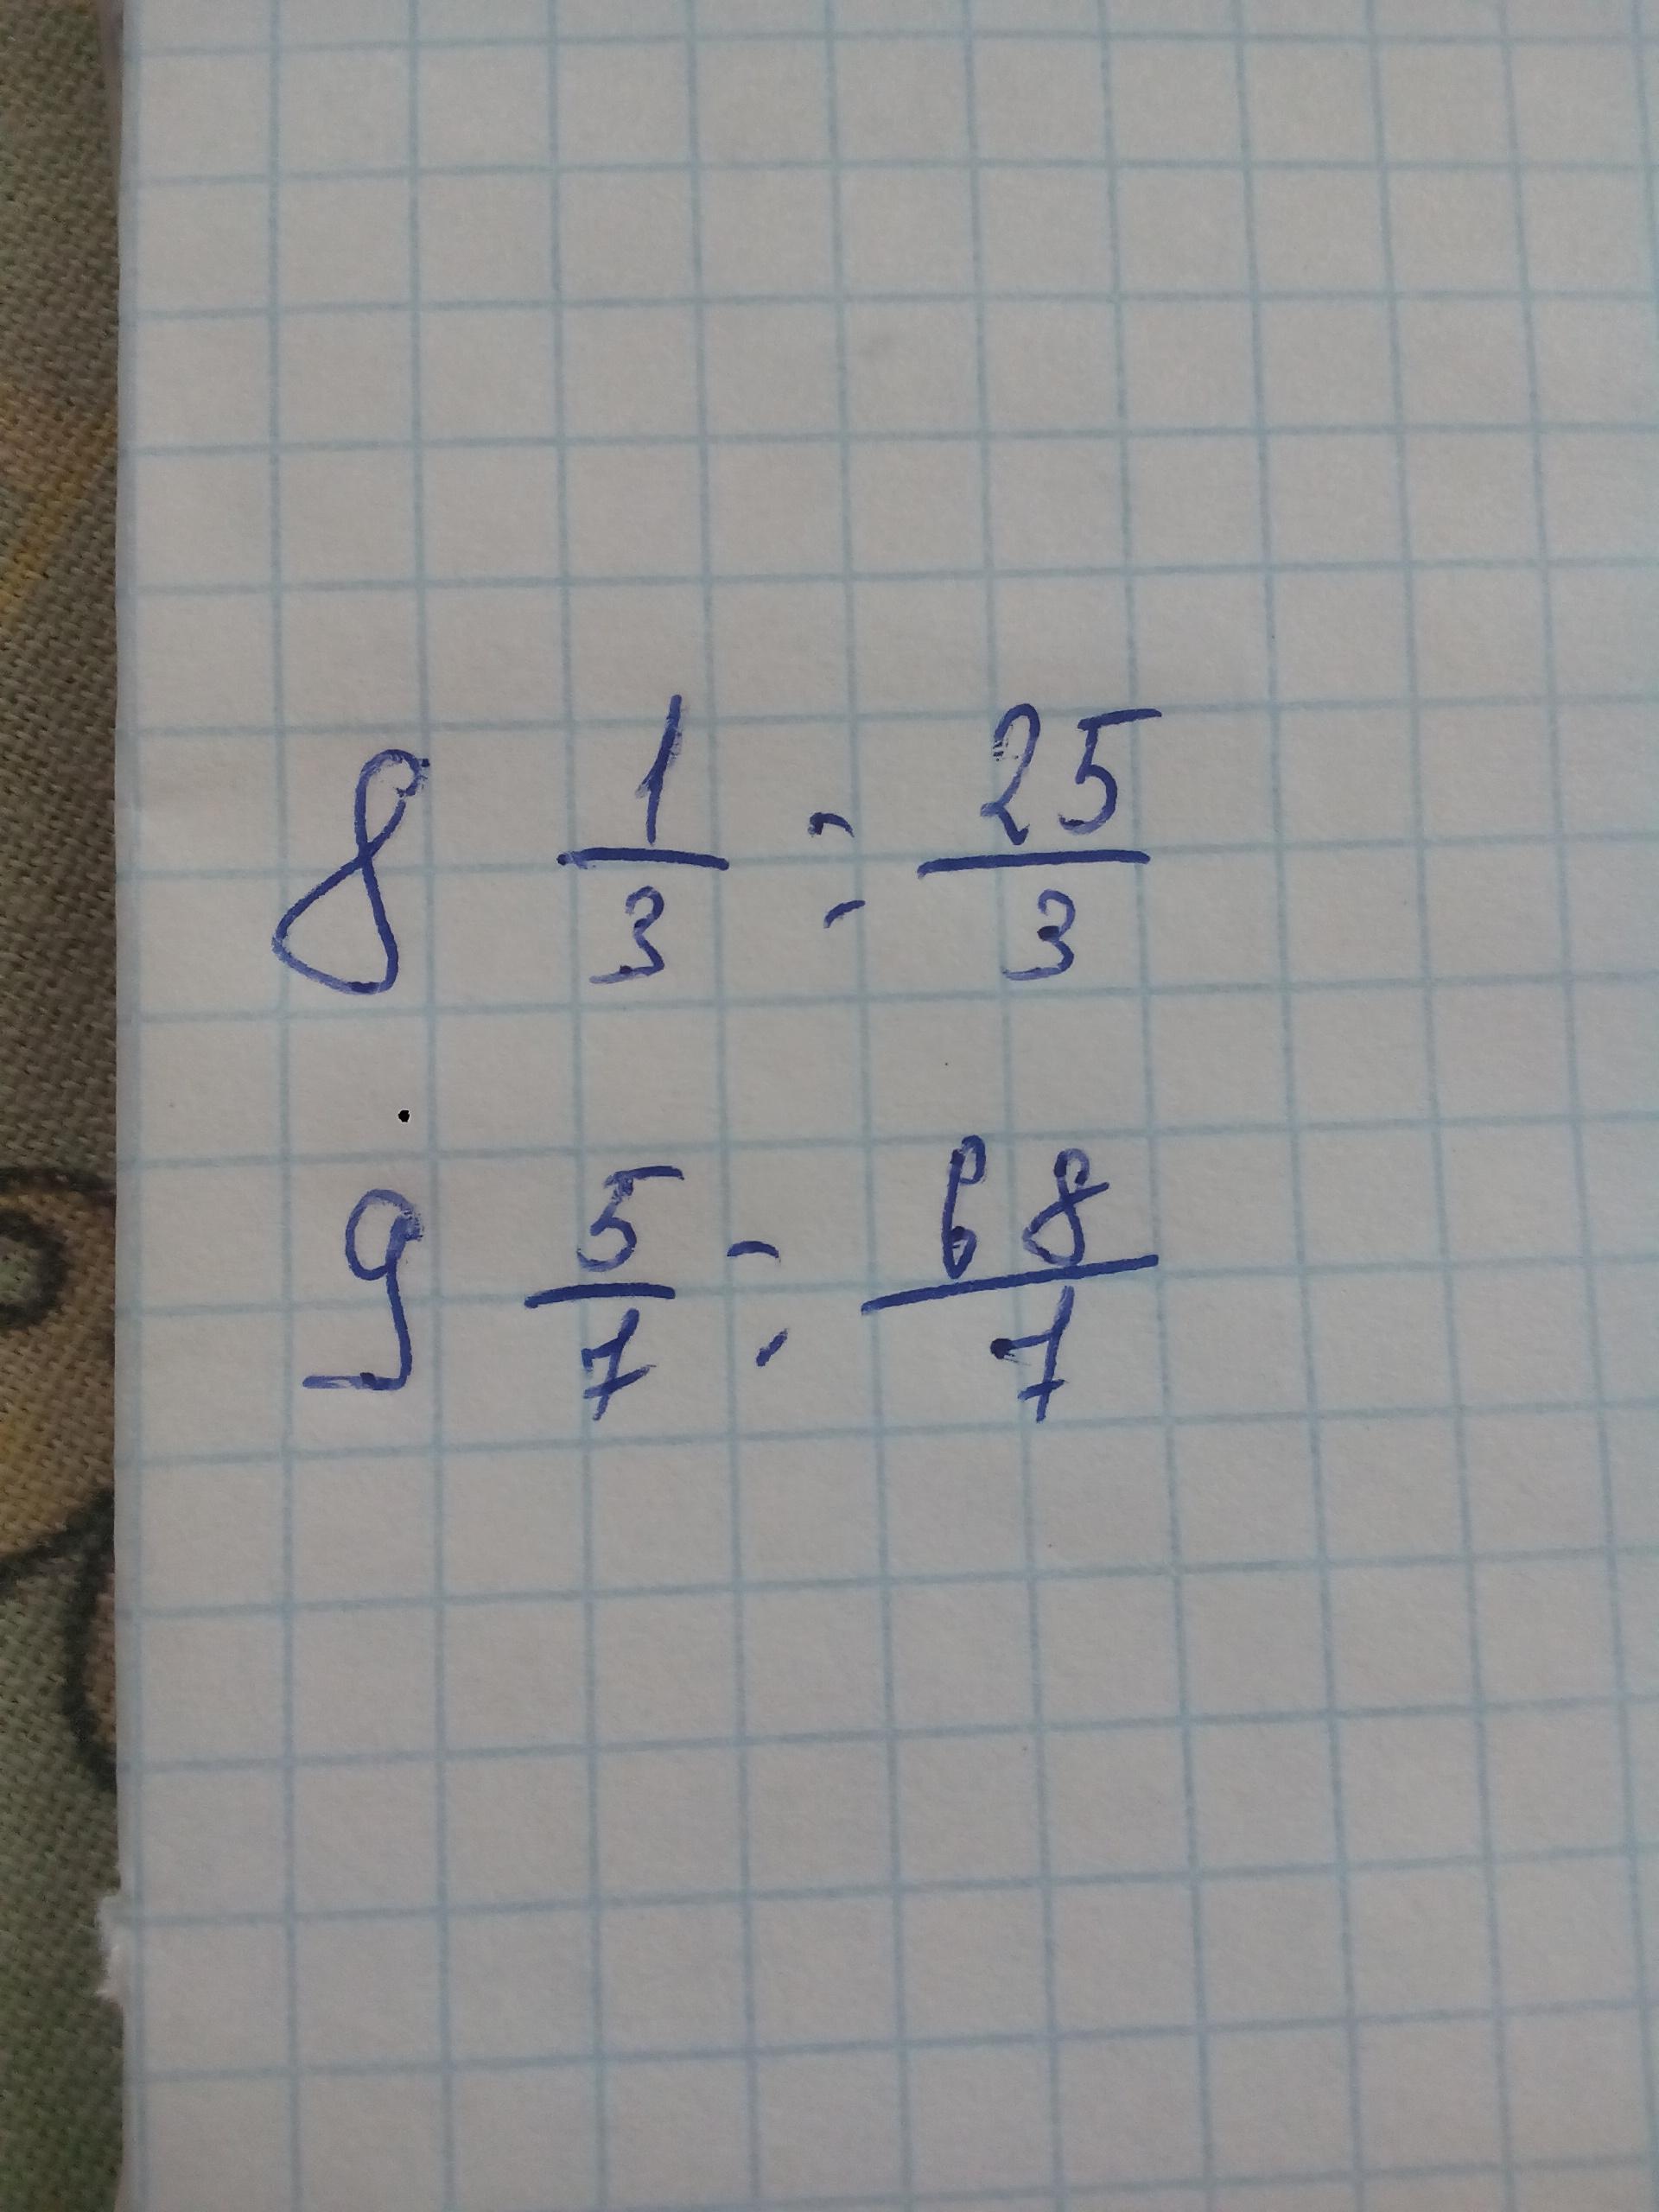 8 1/3 = 25/3
9 5/7 = 68/7